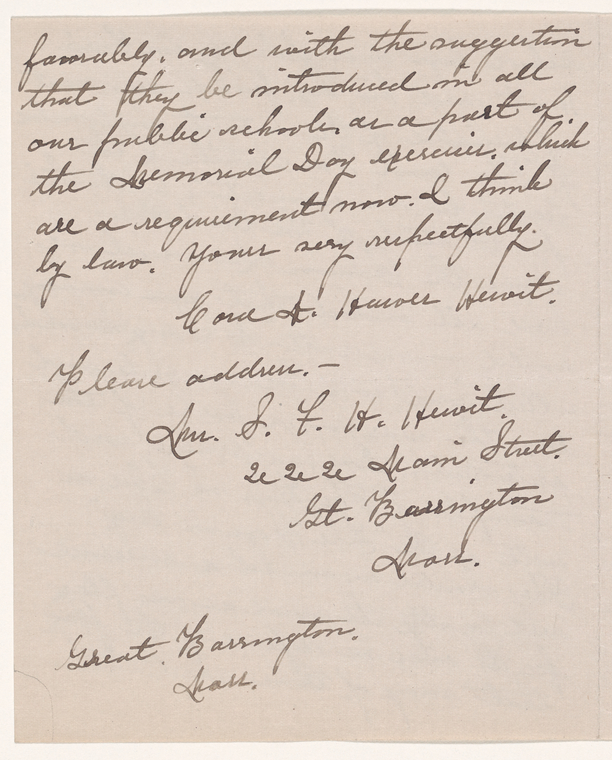 favorably, and with the suggestion
that they be introduced in all
our public schools, as a part of
the Memorial Day exercises, which
are a requirement now. I think
by law. Yours very respectfully.
Cora A. Hawes Hewit.
Please address.—
Mrs. S. F. H. Hewit,
222 Main Street.
Gt. Barrington
Mass.
Great Barrington.
Mass.